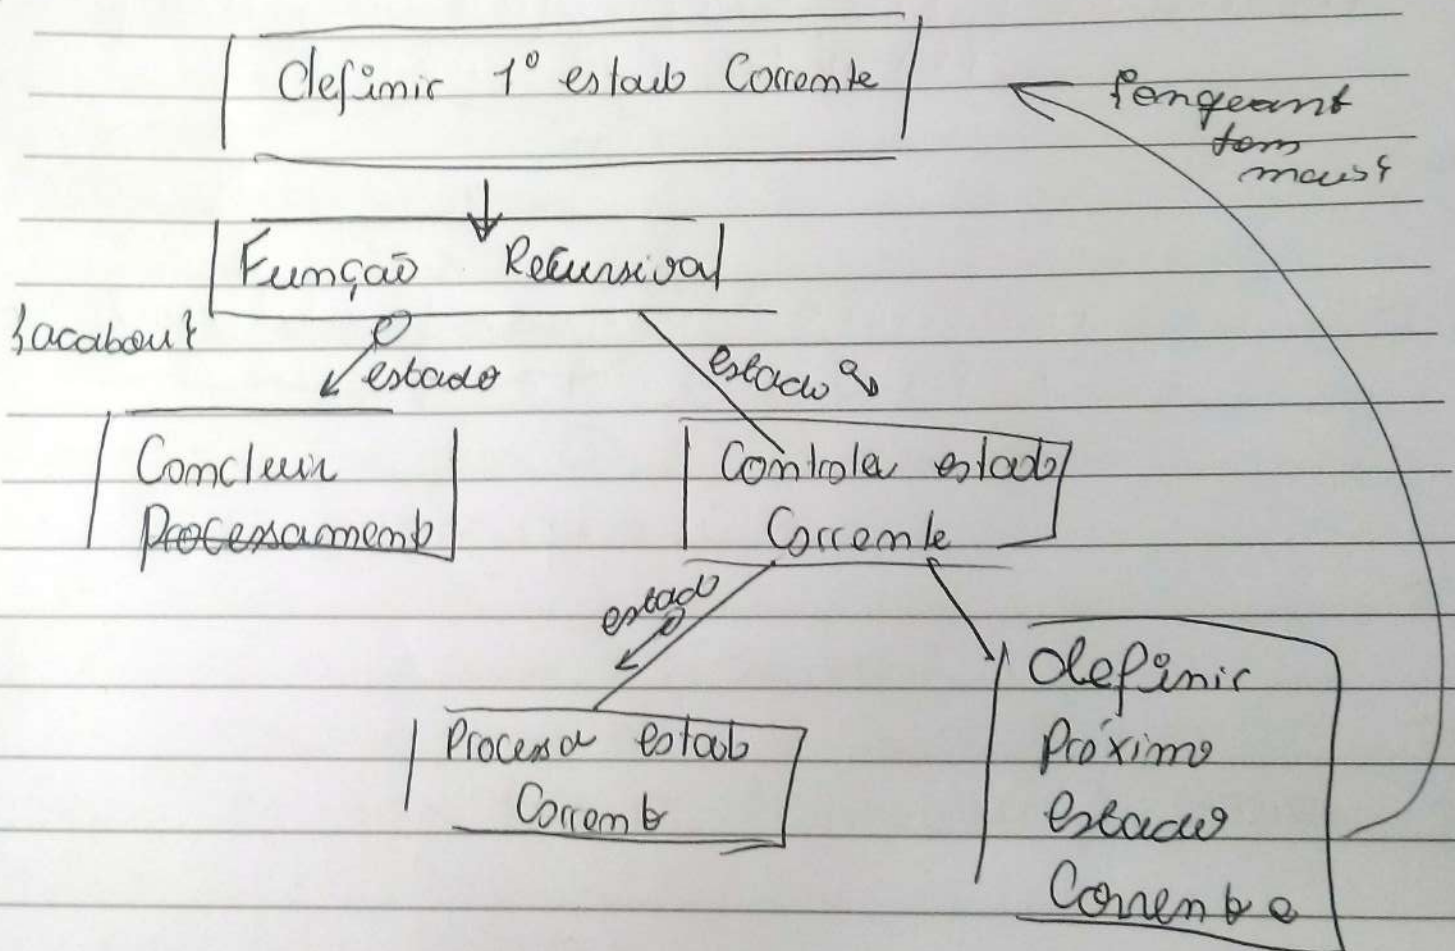 definir 1º estado Corrente
{enquanto
tem
mais}
Função Recursiva
{acabou}
estado
estado
Concluir
Processamento
Controla estado
Corrente
estado
Processa estado
Corrente
definir
Próximo
estado
Corrente